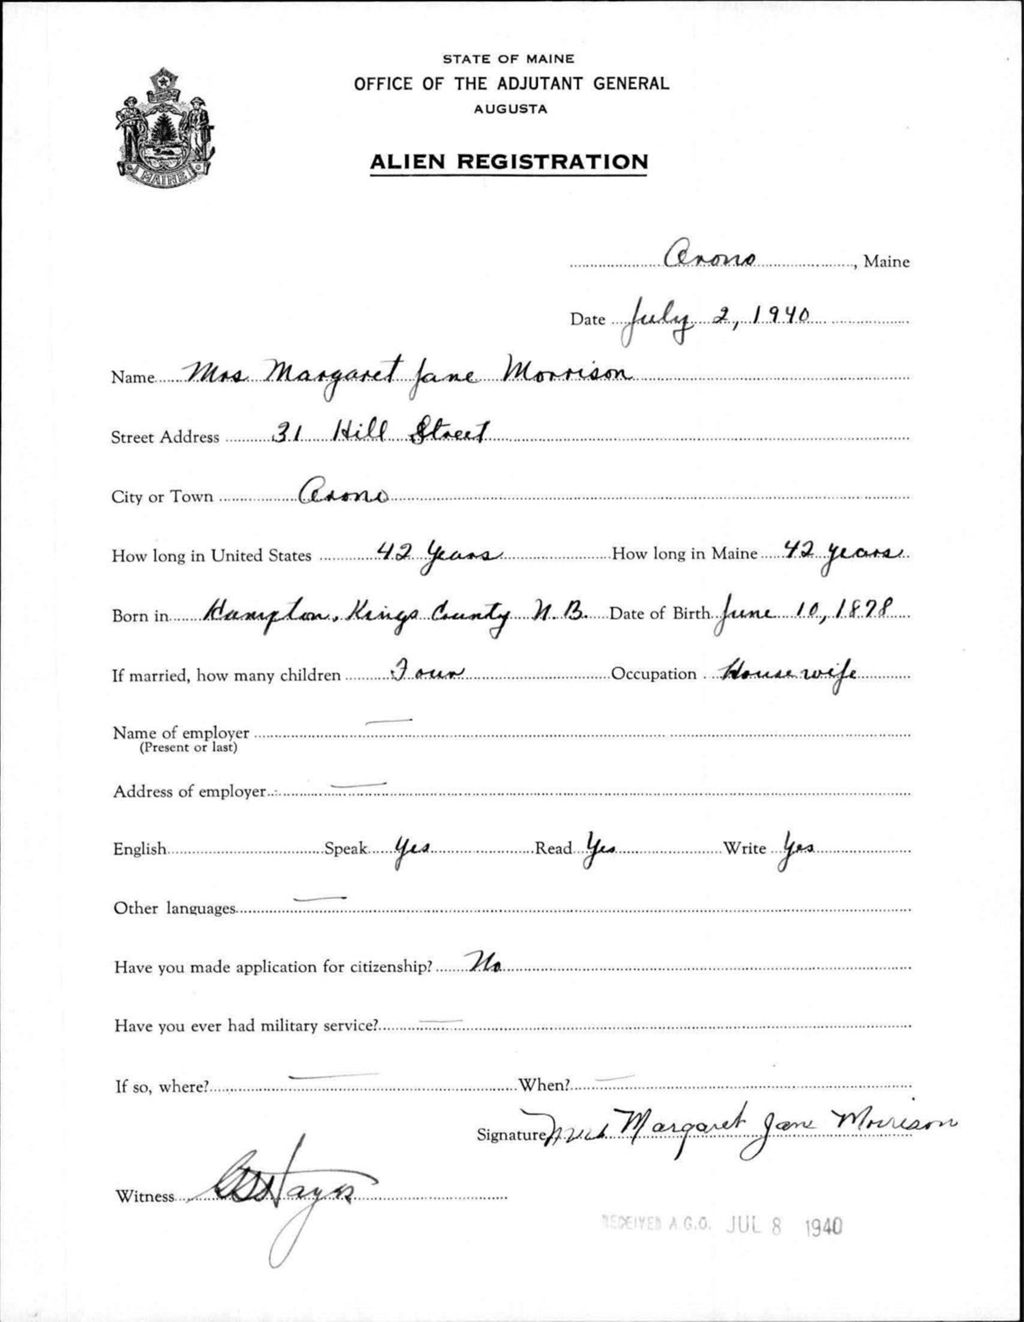 STATE OF MAINE
OFFICE OF THE ADJUTANT GENERAL
AUGUSTA
ALIEN REGISTRATION
MAINE
Orono, Maine
Date July 2, 1940
Name Mrs Margaret Jane Morrison
Street Address 31 Hill Street
City or Town Orono
How long in United States 42 Years How long in Maine 42 years
Born in Hampton, Kings County N.B. Date of Birth June 10, 1878
If married, how many children Four Occupation Housewife
Name of employer —
(Present or last)
Address of employer —
English Speak Yes Read Yes Write Yes
Other languages —
Have you made application for citizenship? No
Have you ever had military service? —
If so, where? — When? —
Signature Mrs Margaret Jane Morrison
Witness Hayes
RECEIVED A.G.O. JUL 8 1940